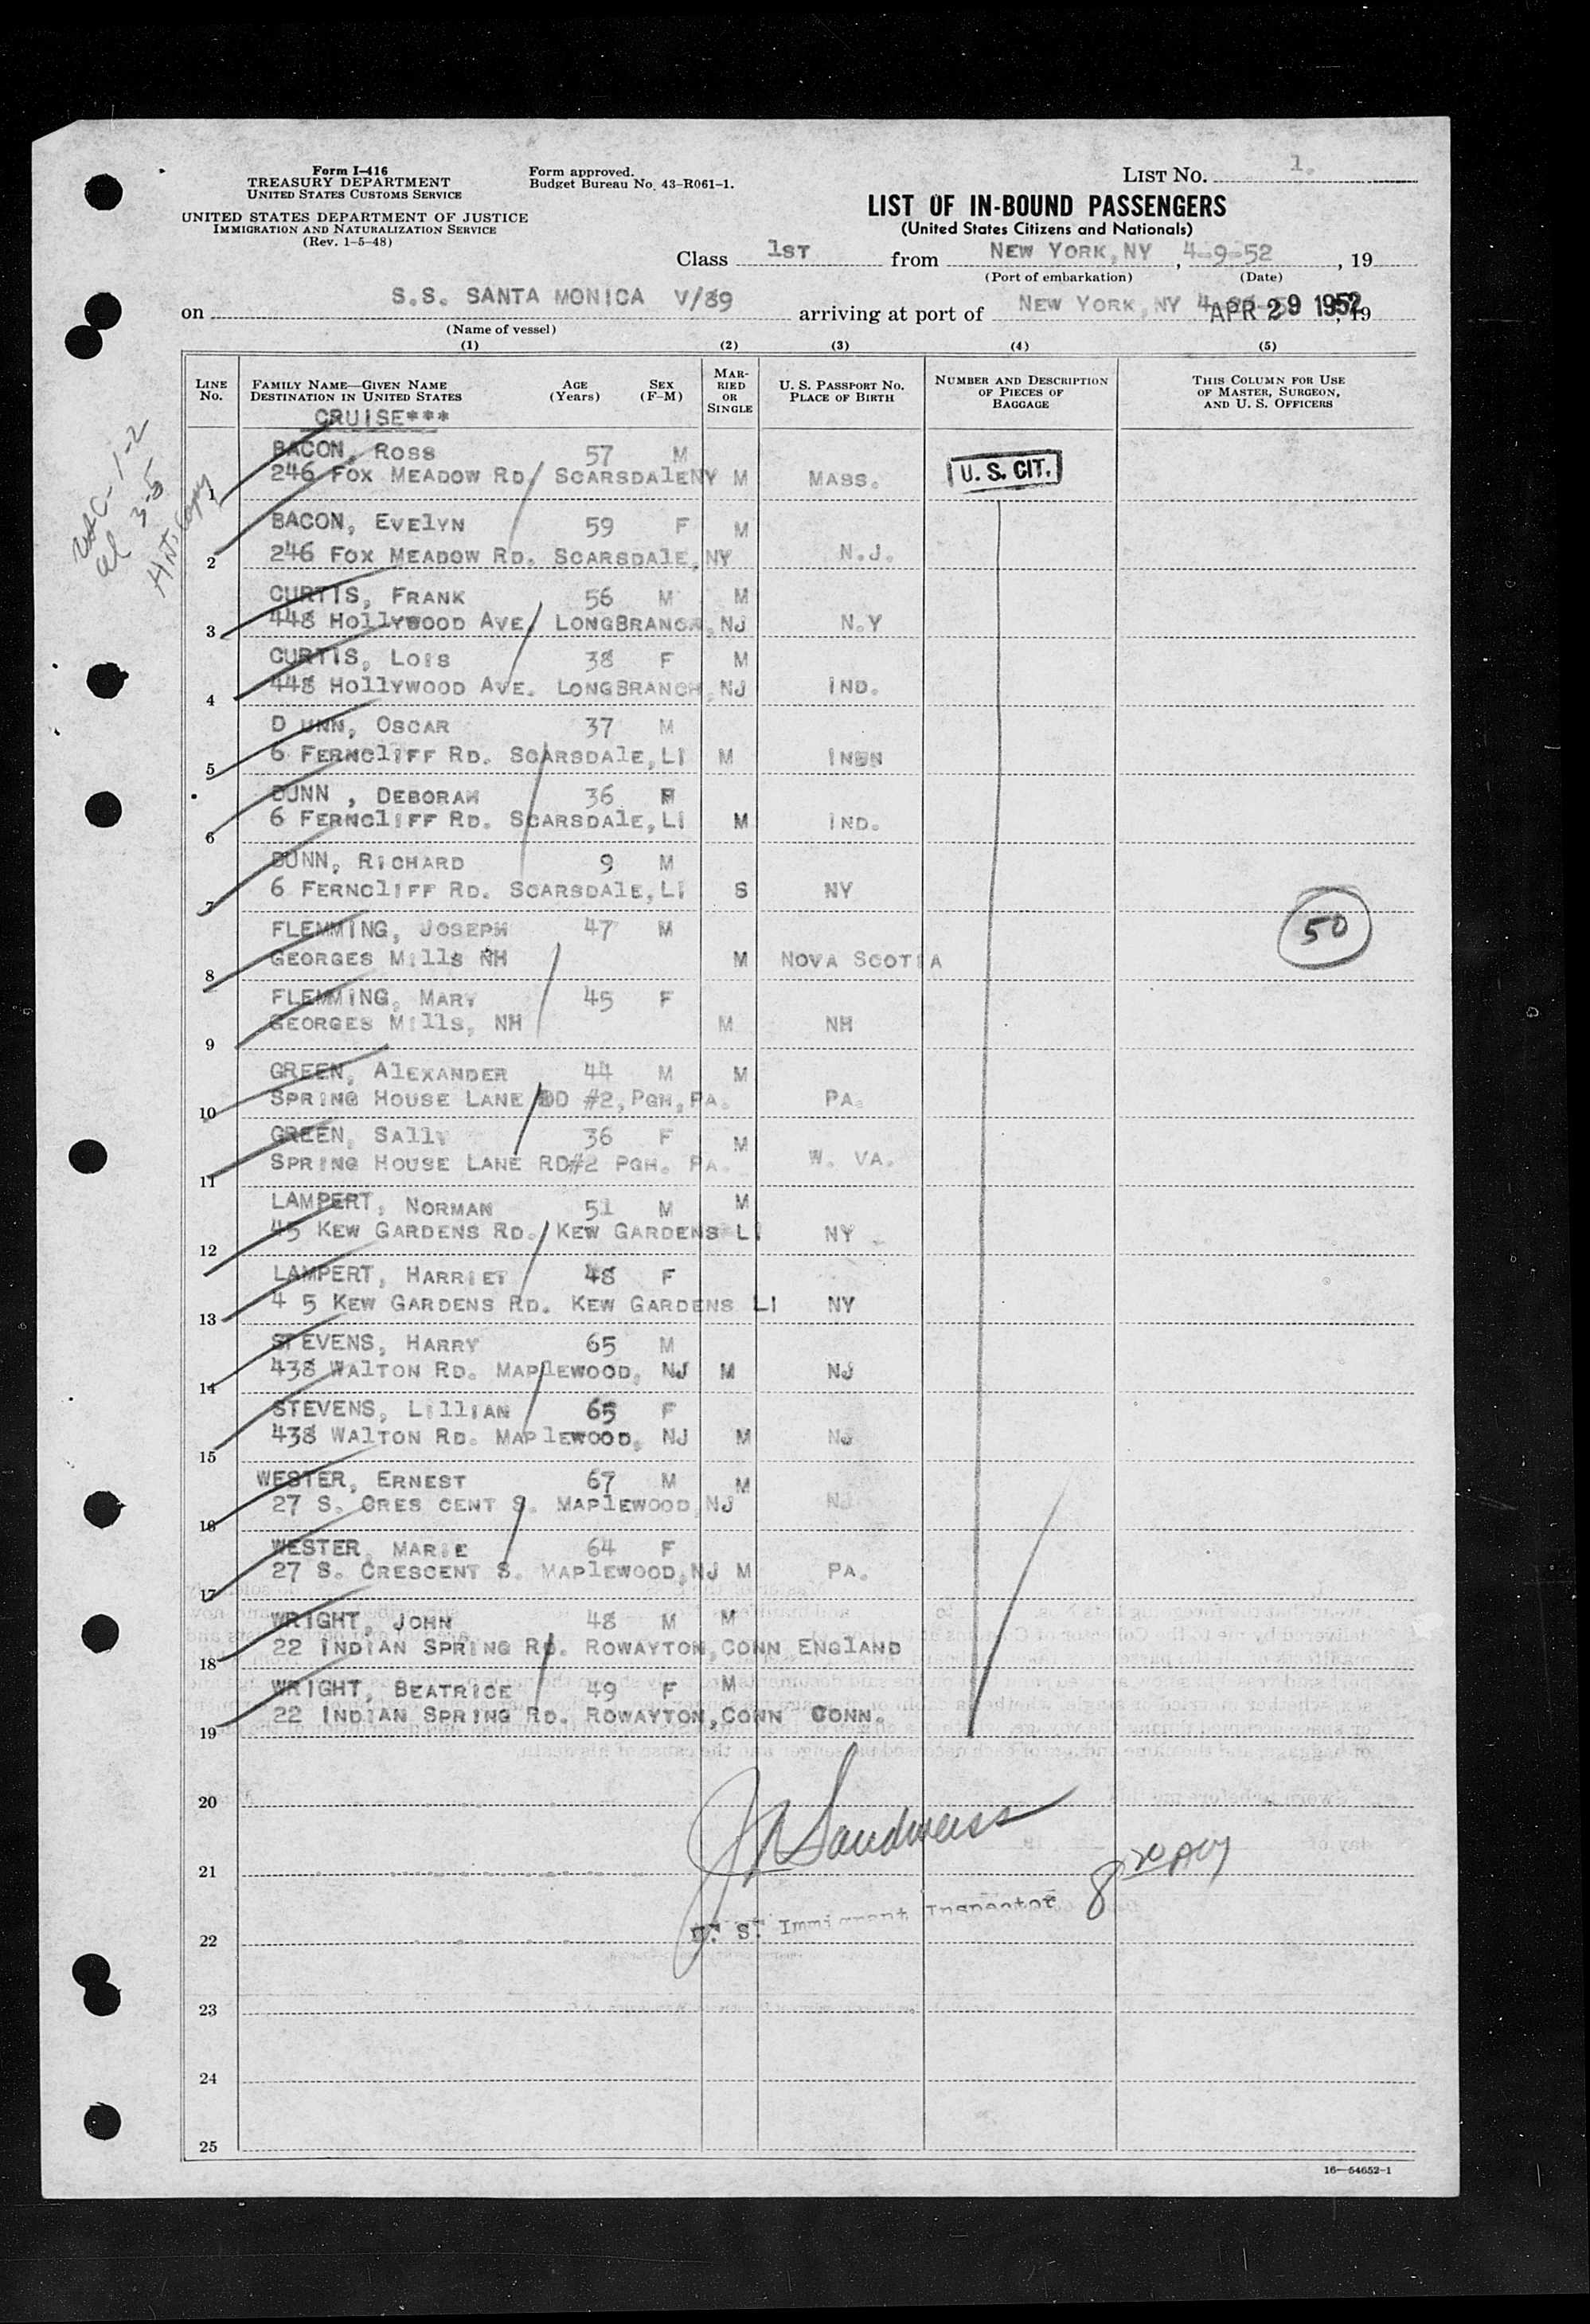 Form I-416
TREASURY DEPARTMENT
UNITED STATES CUSTOMS SERVICE
UNITED STATES DEPARTMENT OF JUSTICE
IMMIGRATION AND NATURALIZATION SERVICE
(Rev. 1-5-48)
Form approved.
Budget Bureau No. 43-R061-1.
LIST NO. 1.
LIST OF IN-BOUND PASSENGERS
(United States Citizens and Nationals)
Class 1ST from NEW YORK, NY, 4-9-52, 19
(Port of embarkation) (Date)
on S.S. SANTA MONICA V/89 arriving at port of NEW YORK, NY APR 29 1952, 19
(Name of vessel)
(1) (2) (3) (4) (5)
LINE No. FAMILY NAME—GIVEN NAME DESTINATION IN UNITED STATES AGE (Years) SEX (F-M) MARRIED OR SINGLE U. S. PASSPORT NO. PLACE OF BIRTH NUMBER AND DESCRIPTION OF PIECES OF BAGGAGE THIS COLUMN FOR USE OF MASTER, SURGEON, AND U. S. OFFICERS
CRUISE***
BACON, ROSS 57 M
1 246 FOX MEADOW RD/ SCARSDALENY M MASS. U. S. CIT.
BACON, EVELYN 59 F M
2 246 FOX MEADOW RD. SCARSDALE, NY N.J.
CURTIS, FRANK 56 M M
3 448 HOLLYWOOD AVE. LONGBRANCH, NJ N.Y
CURTIS, LOIS 38 F M
4 448 HOLLYWOOD AVE. LONGBRANCH, NJ IND.
D UNN, OSCAR 37 M
5 6 FERNCLIFF RD. SCARSDALE, LI M
DUNN , DEBORAH 36 F
6 6 FERNCLIFF RD. SCARSDALE, LI M IND.
DUNN, RICHARD 9 M
7 6 FERNCLIFF RD. SCARSDALE, LI S NY
50
FLEMMING, JOSEPH 47 M
8 GEORGES MILLS NH M NOVA SCOTIA
FLEMMING, MARY 45 F
9 GEORGES MILLS, NH M NH
GREEN, ALEXANDER 44 M M
10 SPRING HOUSE LANE #2, PGH, PA. PA.
GREEN, SALLY 36 F M
11 SPRING HOUSE LANE RD#2 PGH. PA. W. VA.
LAMPERT, NORMAN 51 M M
12 45 KEW GARDENS RD. KEW GARDENS LI NY
LAMPERT, HARRIET 48 F
13 4 5 KEW GARDENS RD. KEW GARDENS LI NY
STEVENS, HARRY 65 M
14 438 WALTON RD. MAPLEWOOD, NJ M NJ
STEVENS, LILLIAN 65 F
15 438 WALTON RD. MAPLEWOOD, NJ M NJ
WESTER, ERNEST 67 M M
16 27 S. CRES CENT S. MAPLEWOOD, NJ NJ
WESTER, MARIE 64 F
17 27 S. CRESCENT S. MAPLEWOOD, NJ M PA.
WRIGHT, JOHN 48 M M
18 22 INDIAN SPRING RD. ROWAYTON, CONN ENGLAND
WRIGHT, BEATRICE 49 F M
19 22 INDIAN SPRING RD. ROWAYTON, CONN CONN.
20
21
U. S. Immigrant Inspector
22
23
24
25
16—54652-1